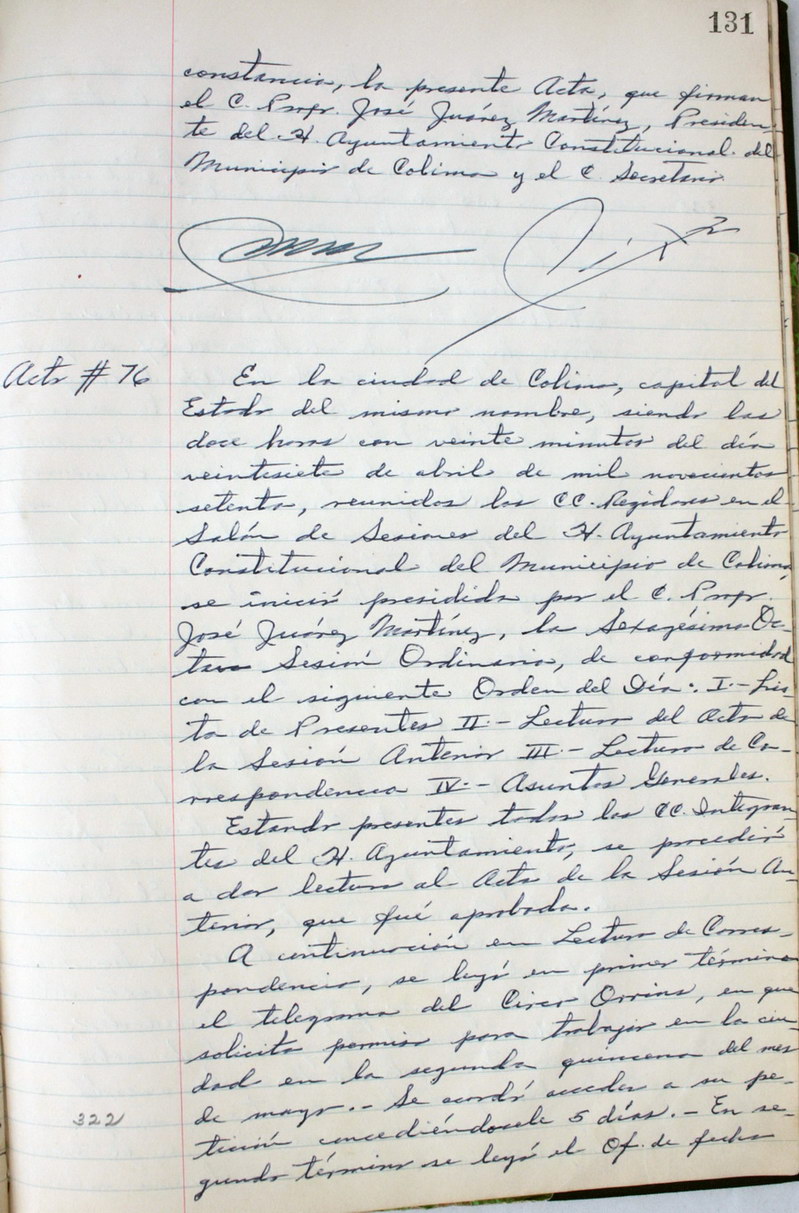 131
constancia, la presente Acta, que firman
el C. Profr. José Juárez Martínez, Presiden-
te del H. Ayuntamiento Constitucional del
Municipio de Colima y el C. Secretario
Acta # 76
En la ciudad de Colima, capital del
Estado del mismo nombre, siendo las
doce horas con veinte minutos del día
veintisiete de abril de mil novecientos
setenta, reunidos los CC. Regidores en el
Salón de Sesiones del H. Ayuntamiento
Constitucional del Municipio de Colima
se inició presidida por el C. Profr.
José Juárez Martínez, la Sexagésima Oc-
tava Sesión Ordinaria, de conformidad
con el siguiente Orden del Día: I.- Lis-
ta de Presentes II.- Lectura del Acta de
la Sesión Anterior III.- Lectura de Co-
rrespondencia IV.- Asuntos Generales.
Estando presentes todos los CC. Integran-
tes del H. Ayuntamiento, se procedió
a dar lectura al Acta de la Sesión An-
terior, que fué aprobada.
A continuación en Lectura de Corres-
pondencia, se leyó en primer término
el telegrama del Circo Orrins, en que
solicita permiso para trabajar en la ciu-
dad en la segunda quincena del mes
de mayo.- Se acordó acceder a su pe-
322
tición concediéndosele 5 días.- En se-
gundo término se leyó el Of. de fecha